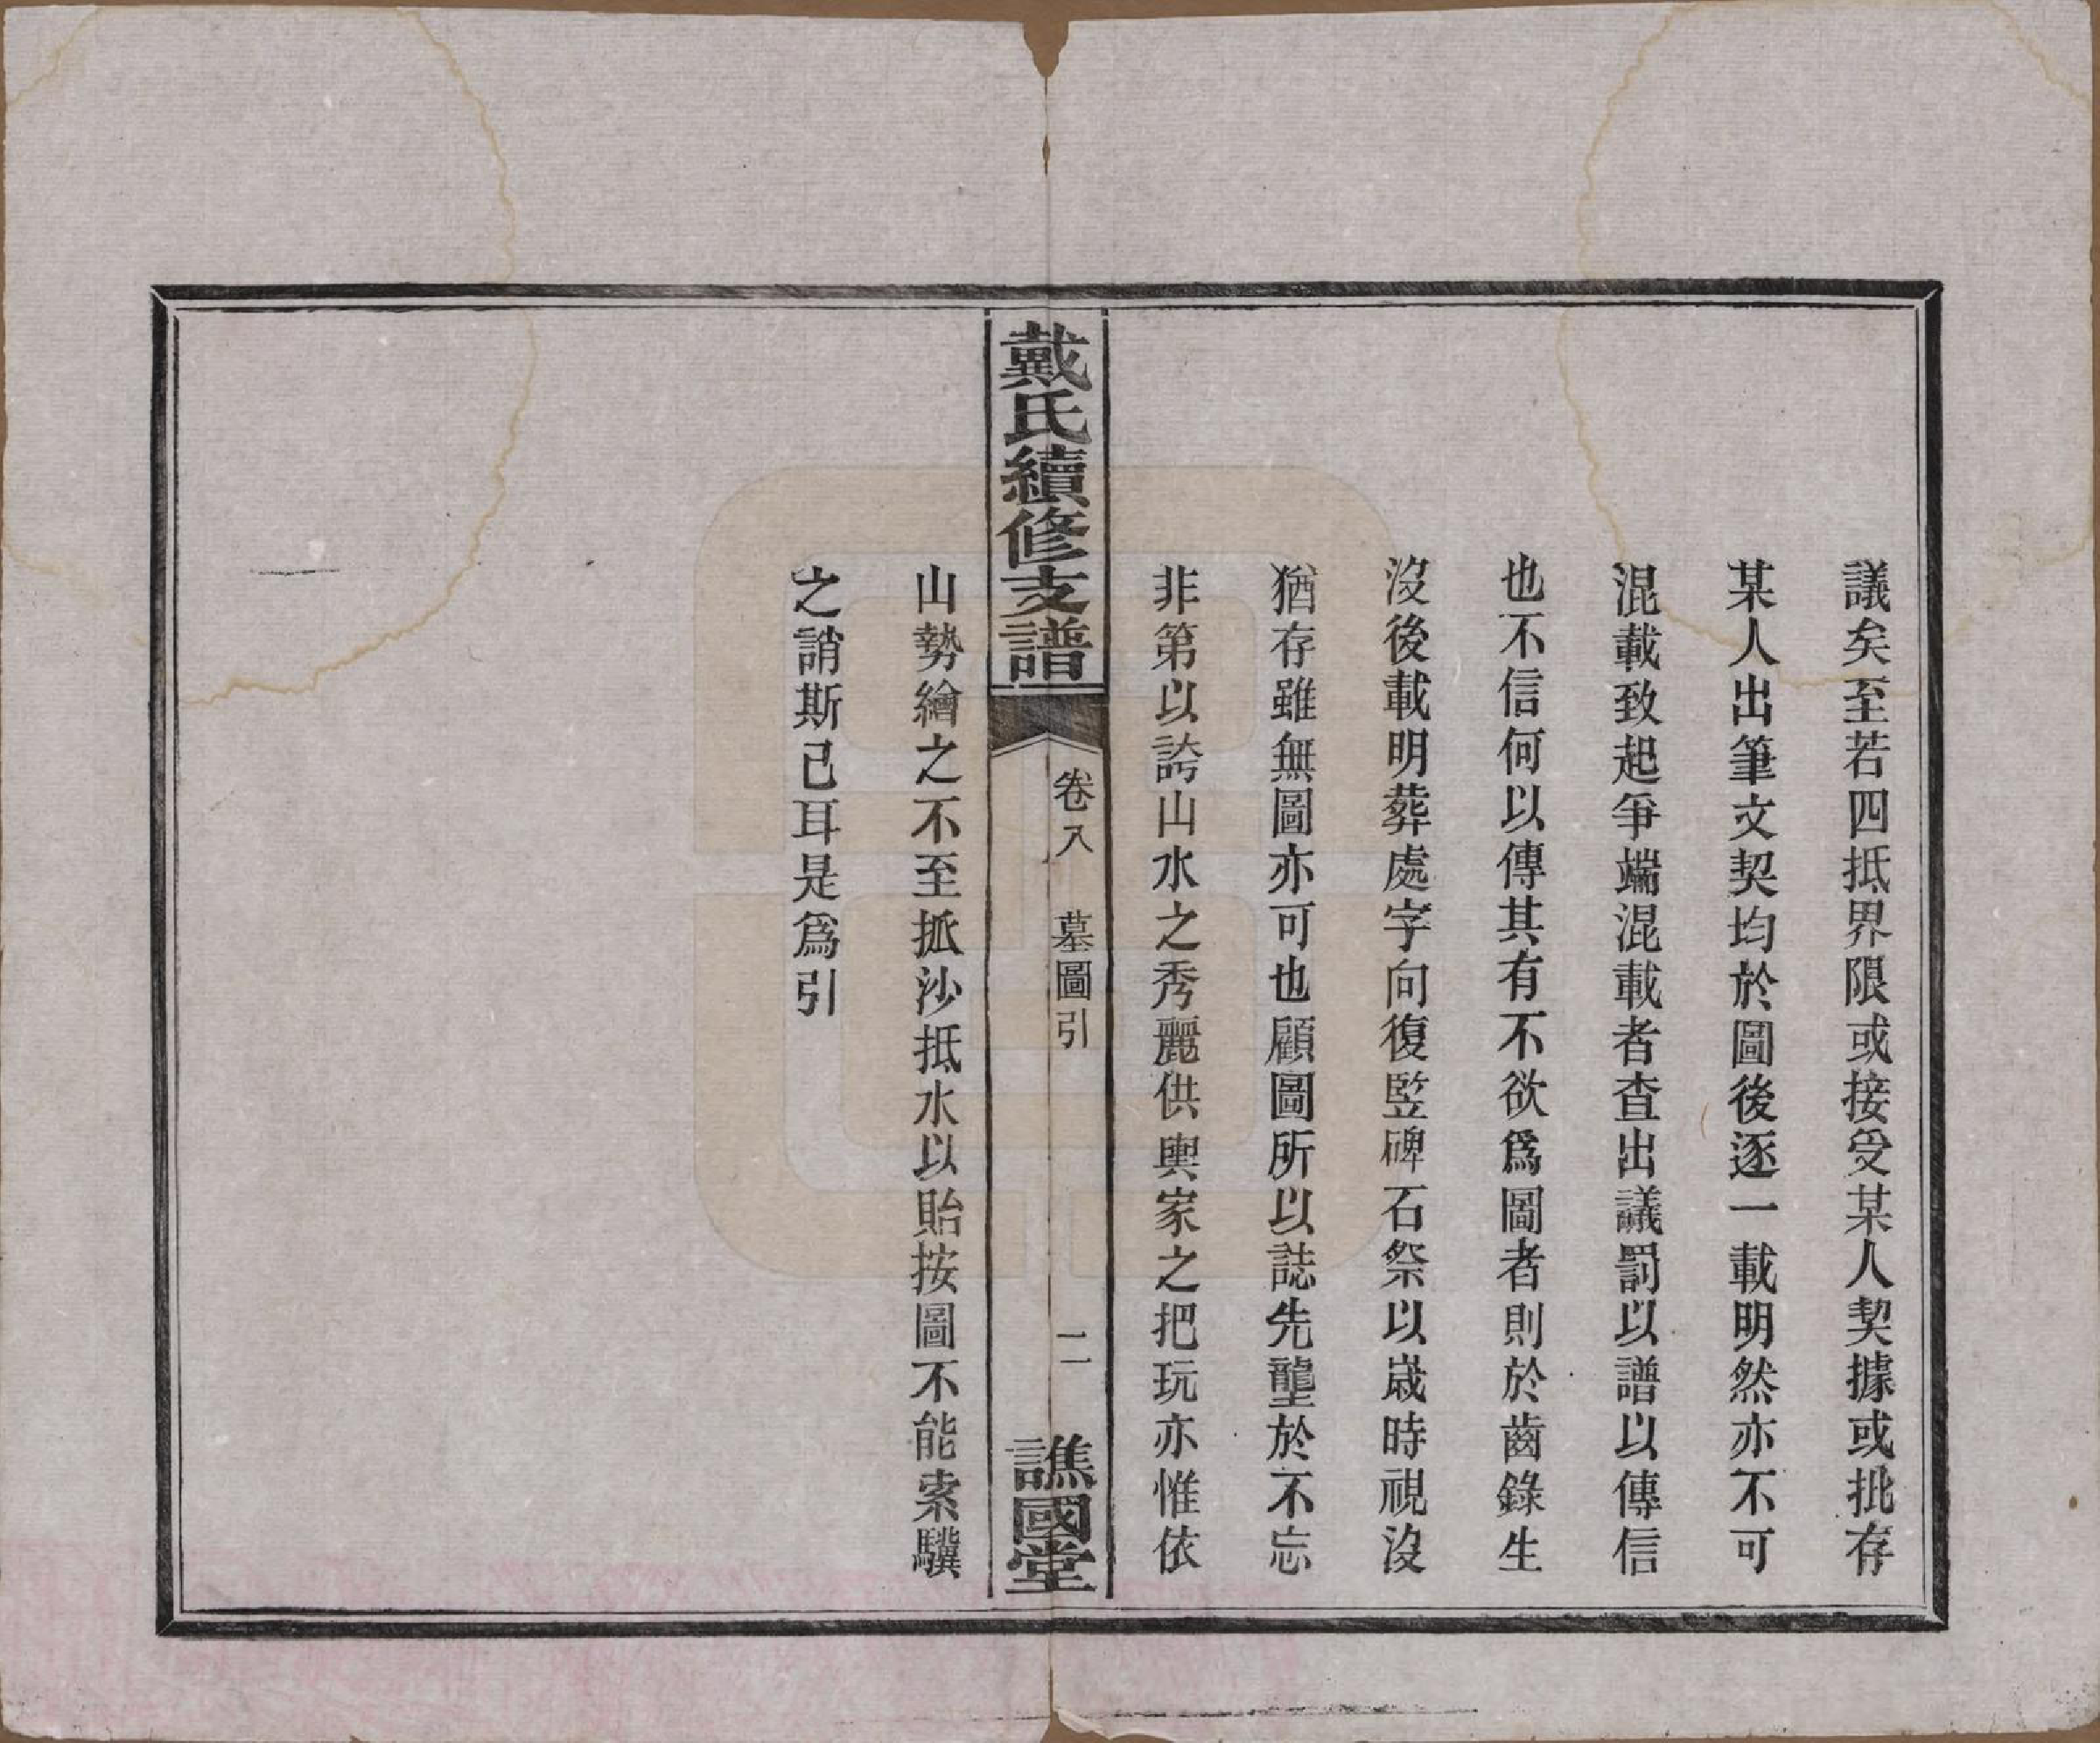 議矣至若四抵界限或接受某人契據或批存
某人出筆文契均於圖後逐一載明然亦不可
混載致起爭端混載者查出議罰以譜以傳信
也不信何以傳其有不欲爲圖者則於齒錄生
沒後載明葬處字向復竪碑石祭以歲時視沒
猶存雖無圖亦可也顧圖所以誌先壟於不忘
非第以誇山水之秀麗供輿家之把玩亦惟依
戴氏續修支譜
卷八 墓圖引
二
譙國堂
山勢繪之不至抓沙抵水以貽按圖不能索驥
之誚斯已耳是爲引